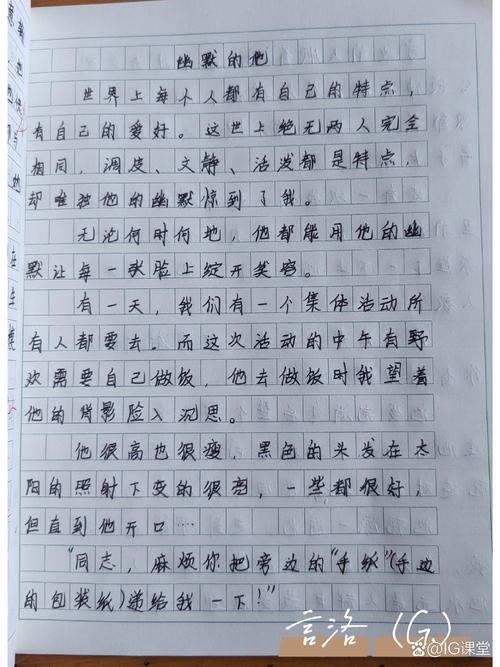 幽默的他
世界上每个人都有自己的特点，
有自己的爱好。这世上绝无两人完全
相同，调皮、文静、活泼都是特点，
却唯独他的幽默惊到了我。
无论何时何地，他都能用他的幽
默让每一张脸上绽开笑容。
有一天，我们有一个集体活动所
有人都要去。而这次活动的中午有野
炊需要自己做饭，他去做饭时我望着
他的背影陷入沉思。
他很高也很瘦，黑色的头发在太
阳的照射下变的很亮，一些都很好，
但直到他开口……
“同志，麻烦你把旁边的“手纸”(手边
的包装纸)递给我一下！”
言洛（G.）
@IG课堂